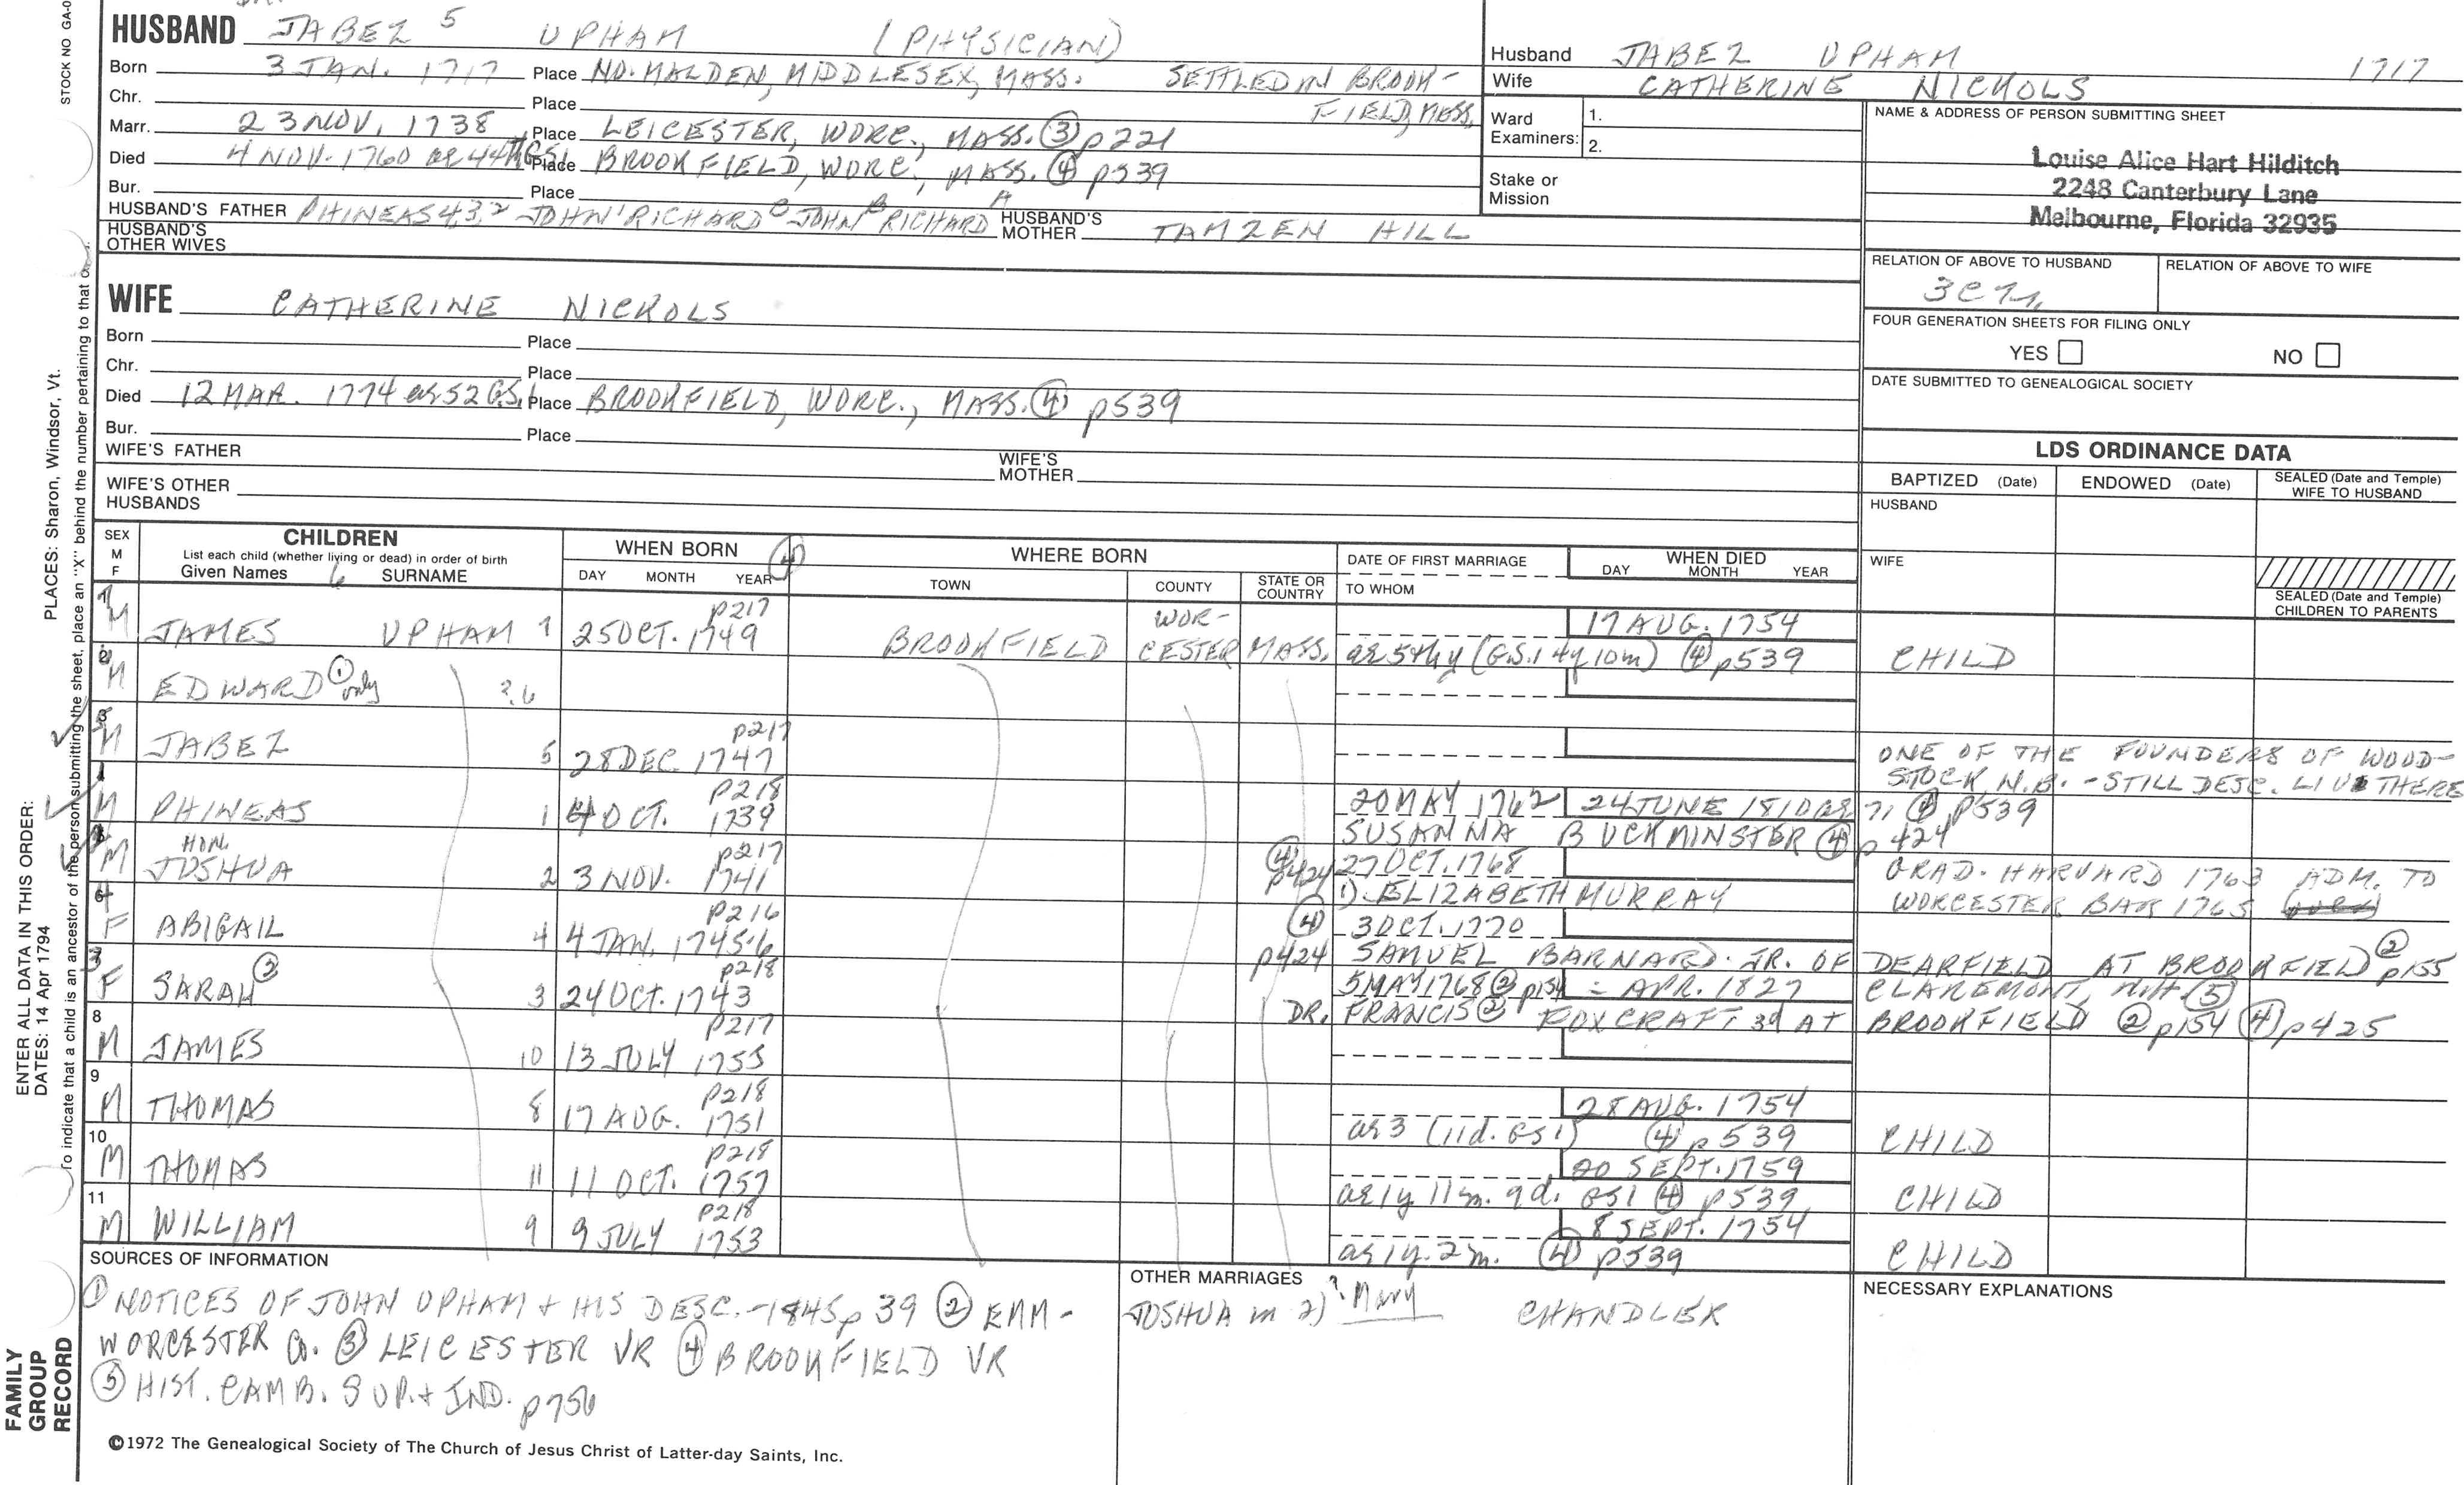 STOCK NO GA-0
HUSBAND JABEZ 5 UPHAM (PHYSICIAN)
Born 3 JAN. 1717 Place NO. MALDEN, MIDDLESEX, MASS. SETTLED IN BROOK-
Chr. Place FIELD, MASS.
Marr. 23 NOV. 1738 Place LEICESTER, WORC., MASS. ③ p221
Died 4 NOV. 1760 ae 44 GS1 Place BROOKFIELD, WORC., MASS. ④ p539
Bur. Place
HUSBAND'S FATHER PHINEAS 4 3, 2 JOHN 1 RICHARD C JOHN B RICHARD A HUSBAND'S MOTHER TAMZEN HILL
HUSBAND'S OTHER WIVES
Husband JABEZ UPHAM 1717
Wife CATHERINE NICKOLS
Ward Examiners: 1.
2.
Stake or Mission
NAME & ADDRESS OF PERSON SUBMITTING SHEET
Louise Alice Hart Hilditch
2248 Canterbury Lane
Melbourne, Florida 32935
RELATION OF ABOVE TO HUSBAND RELATION OF ABOVE TO WIFE
FOUR GENERATION SHEETS FOR FILING ONLY
YES NO
DATE SUBMITTED TO GENEALOGICAL SOCIETY
WIFE CATHERINE NICKOLS
Born Place
Chr. Place
Died 12 MAR. 1774 ae 52 G.S.1 Place BROOKFIELD, WORC., MASS. ④ p539
Bur. Place
WIFE'S FATHER WIFE'S MOTHER
WIFE'S OTHER HUSBANDS
LDS ORDINANCE DATA
BAPTIZED (Date) ENDOWED (Date) SEALED (Date and Temple) WIFE TO HUSBAND
HUSBAND
WIFE
SEALED (Date and Temple) CHILDREN TO PARENTS
SEX M F CHILDREN List each child (whether living or dead) in order of birth Given Names 6 SURNAME
WHEN BORN ④ DAY MONTH YEAR
WHERE BORN TOWN COUNTY STATE OR COUNTRY
DATE OF FIRST MARRIAGE TO WHOM
WHEN DIED DAY MONTH YEAR
M JAMES UPHAM 7 25 OCT. 1749 p217 BROOKFIELD WOR-CESTER MASS. 17 AUG. 1754
ae 5thy (G.S.1 4y 10m) ④ p539 CHILD
M EDWARD ① only ?6
M JABEZ 5 28 DEC 1747 p217 ONE OF THE FOUNDERS OF WOOD-
STOCK, N.B. - STILL DESC. LIVE THERE
M PHINEAS 1 4 OCT. 1739 p218 20 MAY 1762 24 JUNE 1810 ae 71 ④ p539
SUSANNA BUCKMINSTER ④ p424
M HON. JOSHUA 2 3 NOV. 1741 p217 ④ p424 27 OCT. 1768 GRAD. HARVARD 1763 ADM. TO
1) ELIZABETH MURRAY WORCESTER BAR 1765
F ABIGAIL 4 4 JAN. 1745-6 p216 ④ 3 OCT. 1770
p424 SAMUEL BARNARD JR. OF DEARFIELD AT BROOKFIELD ② p155
F SARAH ③ 3 24 OCT. 1743 p218 5 MAY 1768 ② p154 - APR. 1827 CLAREMONT, N.H. ⑤
DR. FRANCIS ② FOXCRAFT 3d AT BROOKFIELD ② p154 ④ p425
8 M JAMES 10 13 JULY 1755 p217
9 M THOMAS 8 17 AUG. 1751 p218 28 AUG. 1754
ae 3 (11d. GS1) ④ p539 CHILD
10 M THOMAS 11 11 OCT. 1757 p218 20 SEPT. 1759
ae 1y 11m. 9d. GS1 ④ p539 CHILD
11 M WILLIAM 9 9 JULY 1753 p218 8 SEPT. 1754
ae 1y. 2m. ④ p539 CHILD
SOURCES OF INFORMATION
① NOTICES OF JOHN UPHAM + HIS DESC. - 1845 p 39 ② EMM-
WORCESTER Co. ③ LEICESTER VR ④ BROOKFIELD VR
⑤ HIST. CAMB. SUP. + IND. p756
OTHER MARRIAGES
JOSHUA m 2) ? Mary CHANDLER
NECESSARY EXPLANATIONS
©1972 The Genealogical Society of The Church of Jesus Christ of Latter-day Saints, Inc.
FAMILY GROUP RECORD
ENTER ALL DATA IN THIS ORDER:
DATES: 14 Apr 1794
PLACES: Sharon, Windsor, Vt.
To indicate that a child is an ancestor of the person submitting the sheet, place an "X" behind the number pertaining to that